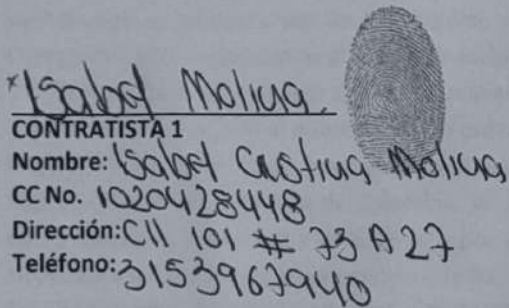 *Isabel Molina.
CONTRATISTA 1
Nombre: Isabel Cristina Molina
CC No. 1020428448
Dirección: Cll 101 # 73 A 27
Teléfono: 3153967940